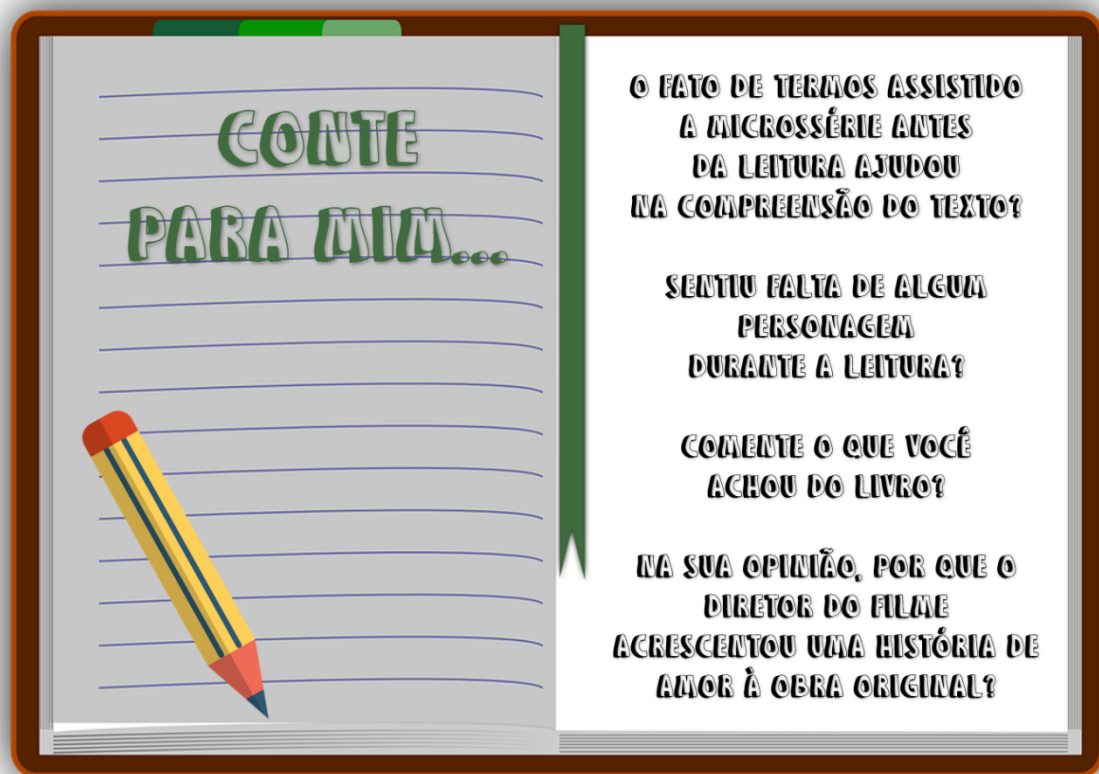 CONTE
PARA MIM...
O FATO DE TERMOS ASSISTIDO
A MICROSSÉRIE ANTES
DA LEITURA AJUDOU
NA COMPREENSÃO DO TEXTO?
SENTIU FALTA DE ALGUM
PERSONAGEM
DURANTE A LEITURA?
COMENTE O QUE VOCÊ
ACHOU DO LIVRO?
NA SUA OPINIÃO, POR QUE O
DIRETOR DO FILME
ACRESCENTOU UMA HISTÓRIA DE
AMOR À OBRA ORIGINAL?